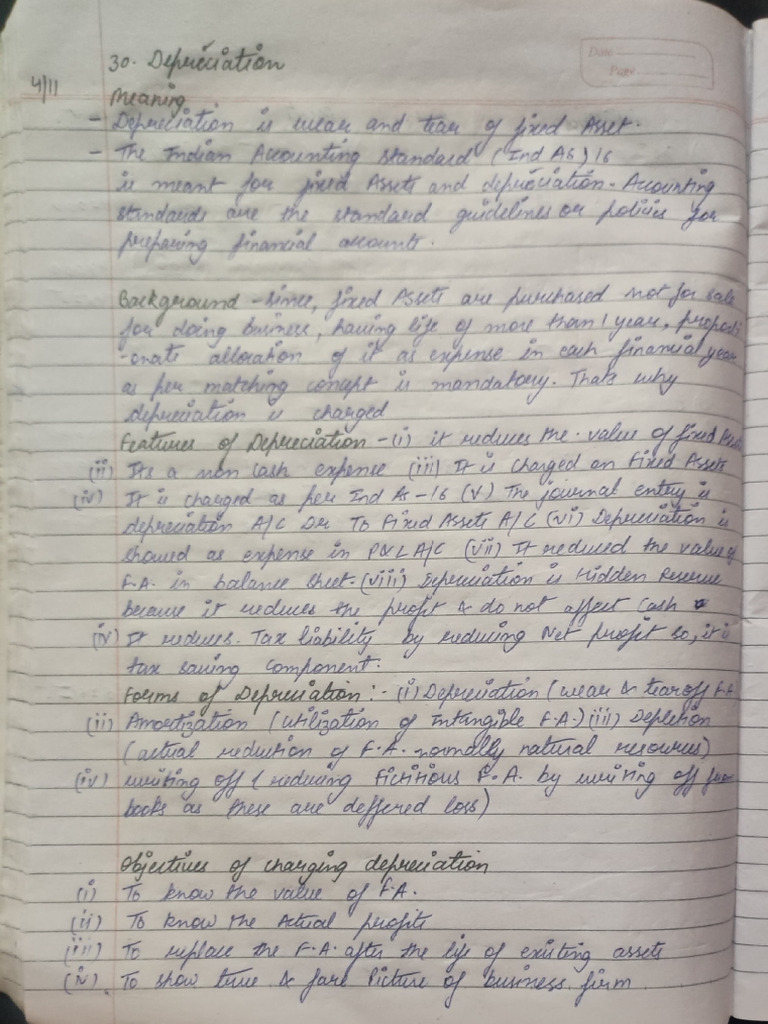 Date
Page
30. Depreciation
4/11
Meaning
- Depreciation is wear and tear of fixed Asset.
- The Indian Accounting Standard (Ind AS) 16
is meant for fixed Assets and depreciation. Accounting
standards are the standard guidelines or policies for
preparing financial accounts.
Background - Since, fixed Assets are purchased not for sale
for doing business, having life of more than 1 year, proporti
-onate allocation of it as expense in each financial year
as per matching concept is mandatory. Thats why
depreciation is charged
Features of Depreciation - (i) it reduces the value of fixed Assets
(ii) Its a non cash expense (iii) It is charged on Fixed Assets
(iv) It is charged as per Ind As-16 (v) The journal entry is
depreciation A/C Dr To Fixed Assets A/C (vi) Depreciation is
showed as expense in P&L A/C (vii) It reduced the value of
F.A. in balance sheet. (viii) Depreciation is Hidden Reserve
because it reduces the profit & do not affect Cash
(iv) It reduces Tax liability by reducing Net profit so, it is
tax saving component.
Forms of Depreciation:- (i) Depreciation (wear & tear off F.A
(ii) Amortization (utilization of Intangible F.A.) (iii) Depletion
(actual reduction of F.A. normally natural resources)
(iv) writing off (reducing Fictitious F.A. by writing off from
books as these are deffered loss)
Objectives of charging depreciation
(i) To know the value of F.A.
(ii) To know the Actual profits
(iii) To replace the F.A. after the life of existing assets
(iv) To show true & fare Picture of business firm.